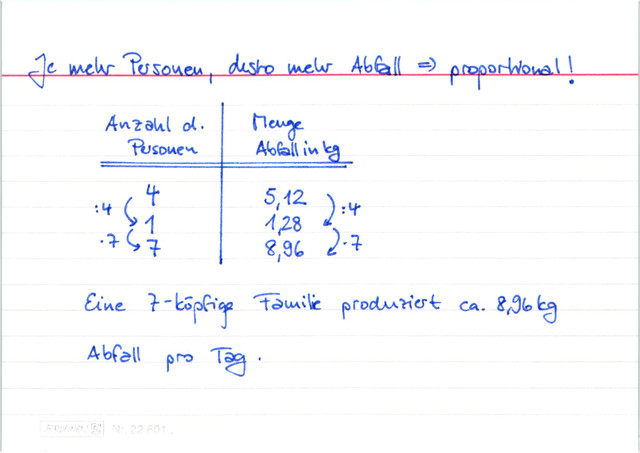 Je mehr Personen, desto mehr Abfall => proportional!
Anzahl d. Personen | Menge Abfall in kg
:4 4 | 5,12 :4
1 | 1,28
·7 7 | 8,96 ·7
Eine 7-köpfige Familie produziert ca. 8,96 kg
Abfall pro Tag.
Nr. 22 631